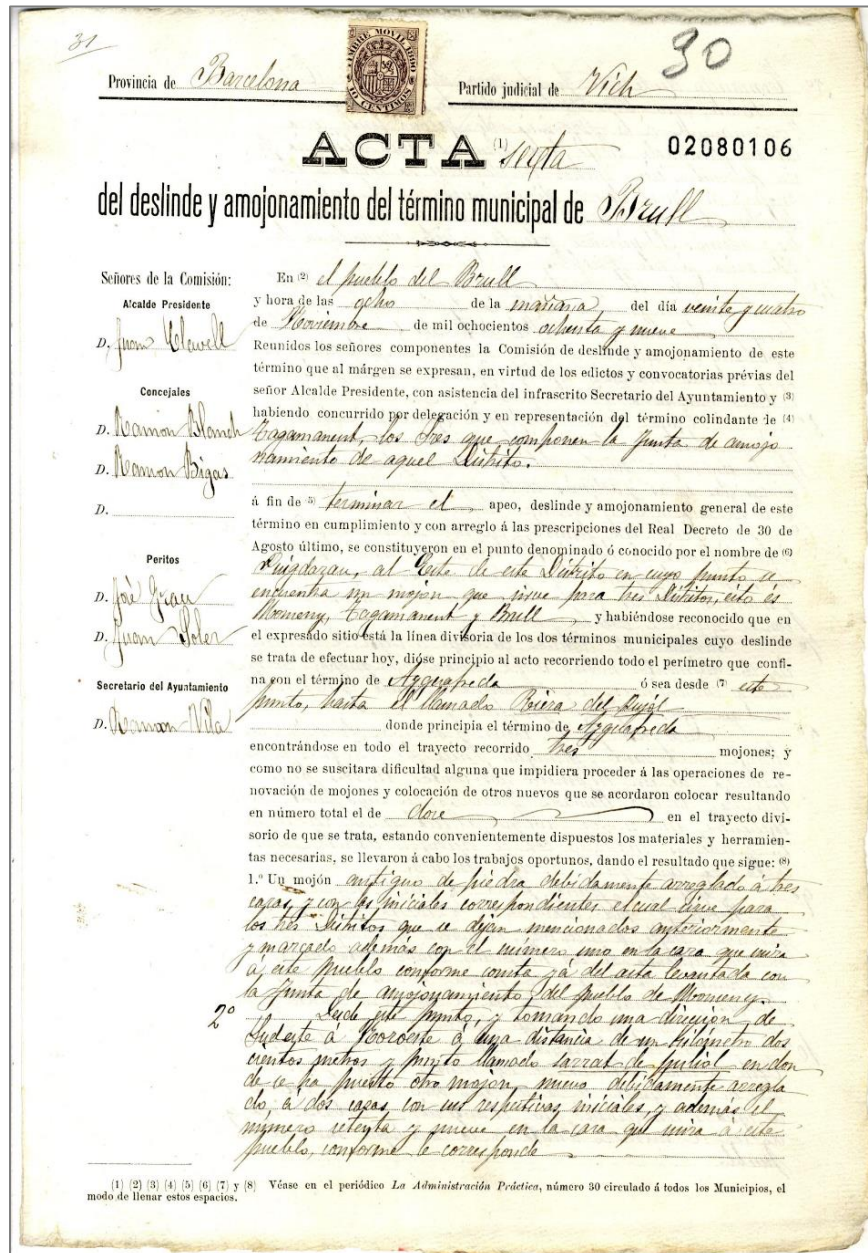 31
30
Provincia de Barcelona
TIMBRE MOVIL 1890
10 CENTIMOS
Partido judicial de Vich
ACTA (1) sexta
02080106
del deslinde y amojonamiento del término municipal de Brull
Señores de la Comisión:
Alcalde Presidente
D. Juan Clavell
Concejales
D. Ramon Blanch
D. Ramon Bigas
D.
Peritos
D. José Grau
D. Juan Soler
Secretario del Ayuntamiento
D. Ramon Vila
En (2) el pueblo del Brull
y hora de las ocho de la mañana, del día veinte y cuatro
de Noviembre de mil ochocientos ochenta y nueve
Reunidos los señores componentes la Comisión de deslinde y amojonamiento de este
término que al márgen se expresan, en virtud de los edictos y convocatorias prévias del
señor Alcalde Presidente, con asistencia del infrascrito Secretario del Ayuntamiento y (3)
habiendo concurrido por delegación y en representación del término colindante de (4)
Tagamanent, los tres que componen la Junta de amojo
namiento de aquel Distrito.
á fin de (5) terminar el apeo, deslinde y amojonamiento general de este
término en cumplimiento y con arreglo á las prescripciones del Real Decreto de 30 de
Agosto último, se constituyeron en el punto denominado ó conocido por el nombre de (6)
al Este de este Distrito en cuyo punto se
encuentra un mojon que sirve para tres Distritos, esto és
Momeny, Tagamanent y Brull, y habiéndose reconocido que en
el expresado sitio está la línea divisoria de los dos términos municipales cuyo deslinde
se trata de efectuar hoy, dióse principio al acto recorriendo todo el perímetro que confi-
na con el término de Ayguafreda ó sea desde (7) este
punto, hasta el llamado Riera del
donde principia el término de Ayguafreda
encontrándose en todo el trayecto recorrido tres mojones; y
como no se suscitara dificultad alguna que impidiera proceder á las operaciones de re-
novación de mojones y colocación de otros nuevos que se acordaron colocar resultando
en número total el de doce en el trayecto divi-
sorio de que se trata, estando convenientemente dispuestos los materiales y herramien-
tas necesarias, se llevaron á cabo los trabajos oportunos, dando el resultado que sigue: (8)
1.º Un mojón antiguo de piedra debidamente arreglado á tres
caras y con las iniciales correspondientes el cual sirve para
los tres Distritos que se dejan mencionados anteriormente
y marcado además con el número uno en la cara que mira
á este pueblo conforme consta yá del acta levantada con
la Junta de amojonamiento del pueblo de Momeny.
2º Desde este punto, y tomando una direccion de
Sudeste á Noroeste á una distancia de un kilómetro dos
cientos metros y punto llamado serrat de en don
de se ha puesto otro mojon, nuevo debidamente arregla
do, á dos caras, con sus respectivas iniciales, y además el
número setenta y nueve en la cara que mira á este
pueblo, conforme le corresponde
(1) (2) (3) (4) (5) (6) (7) y (8) Véase en el periódico La Administración Práctica, número 30 circulado á todos los Municipios, el
modo de llenar estos espacios.